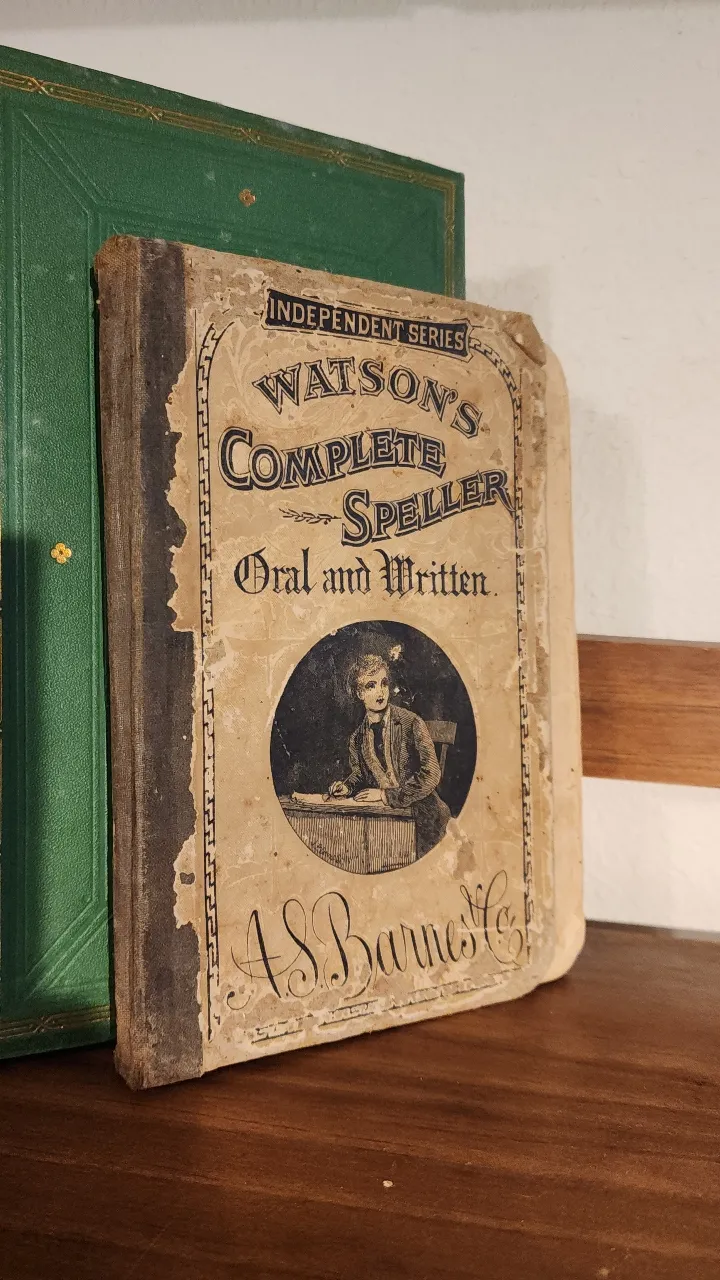 INDEPENDENT SERIES
WATSON'S
COMPLETE
SPELLER
Oral and Written.
A.S. Barnes & Co